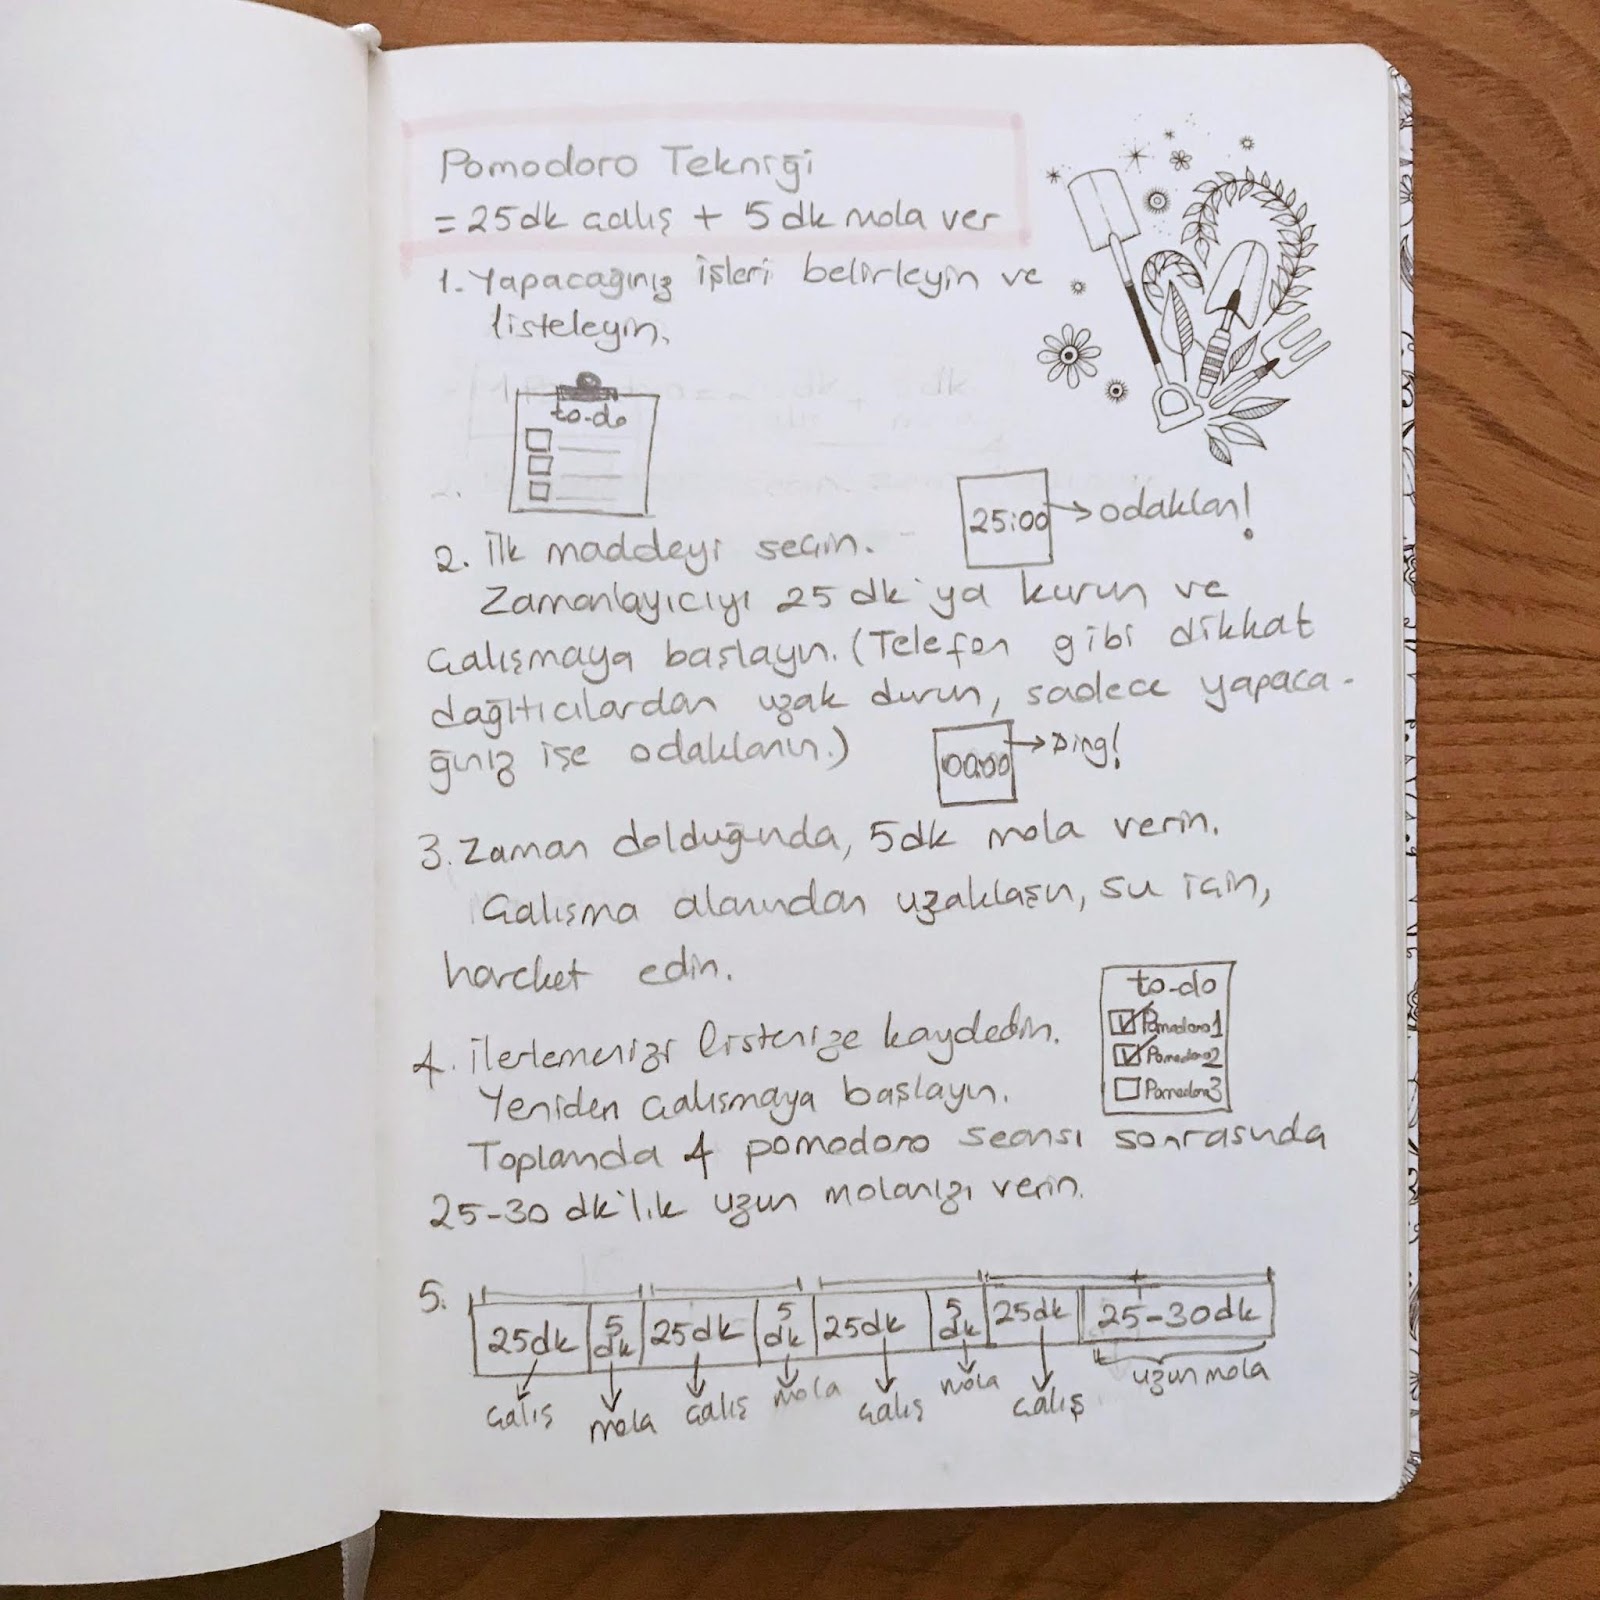 Pomodoro Tekniği
= 25dk çalış + 5 dk mola ver
1. Yapacağınız işleri belirleyin ve
listeleyin.
to-do
25:00 → odaklan!
2. ilk maddeyi seçin.
Zamanlayıcıyı 25 dk'ya kurun ve
çalışmaya başlayın. (Telefon gibi dikkat
dağıtıcılardan uzak durun, sadece yapaca-
ğınız işe odaklanın.)
00:00 → Ding!
3. Zaman dolduğunda, 5dk mola verin.
Çalışma alanından uzaklaşın, su için,
hareket edin.
to-do
Pomodoro1
Pomodoro2
Pomodoro3
4. ilerlemenizi listenize kaydedin.
Yeniden çalışmaya başlayın.
Toplamda 4 pomodoro seansı sonrasında
25-30 dk'lık uzun molanızı verin.
5.
25dk 5 dk 25dk 5 dk 25dk 5 dk 25dk 25-30dk
çalış mola çalış mola çalış mola çalış uzun mola